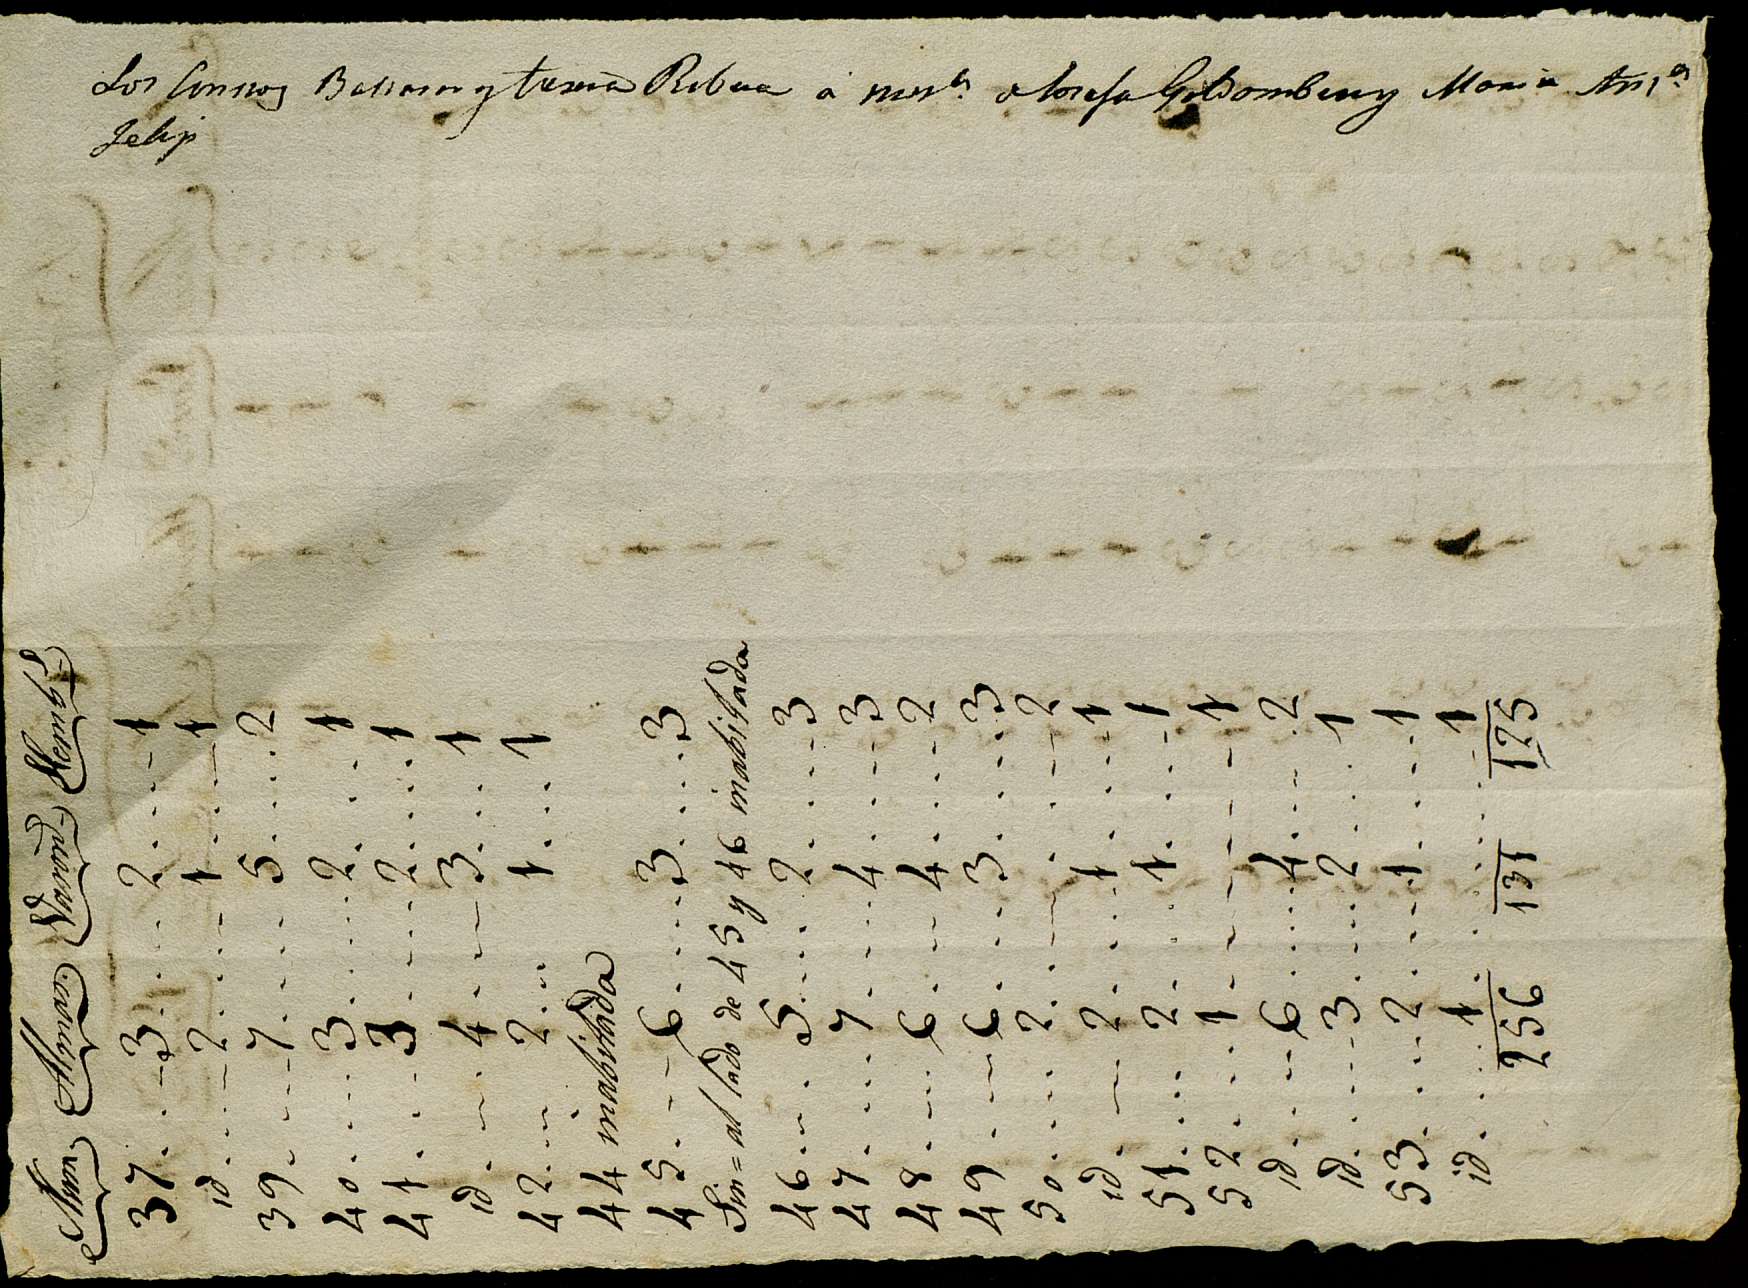 Los y teresa Ribera a Josefa Maria Ant.ª
Felip
Num. Almas. Varon.s Hemb.s
37 3 2 1
id 2 1 1
39 7 5 2
40 3 2 1
41 3 2 1
id 4 3 1
42 2 1 1
44 inabistada
45 6 3 3
Sin = al lado de 45 y 46 inabistada
46 5 2 3
47 7 4 3
48 6 4 2
49 6 3 3
50 2 2
id 2 1 1
51 2 1 1
52 1 1
id 6 4 2
id 3 2 1
53 2 1 1
id 1 1
256 131 125